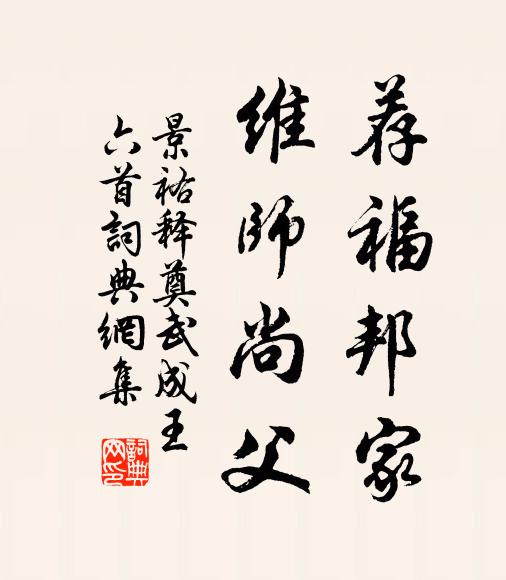 荐福邦家
维師尚父
景祐释奠武成王
六首詞典網集
詞典
网印